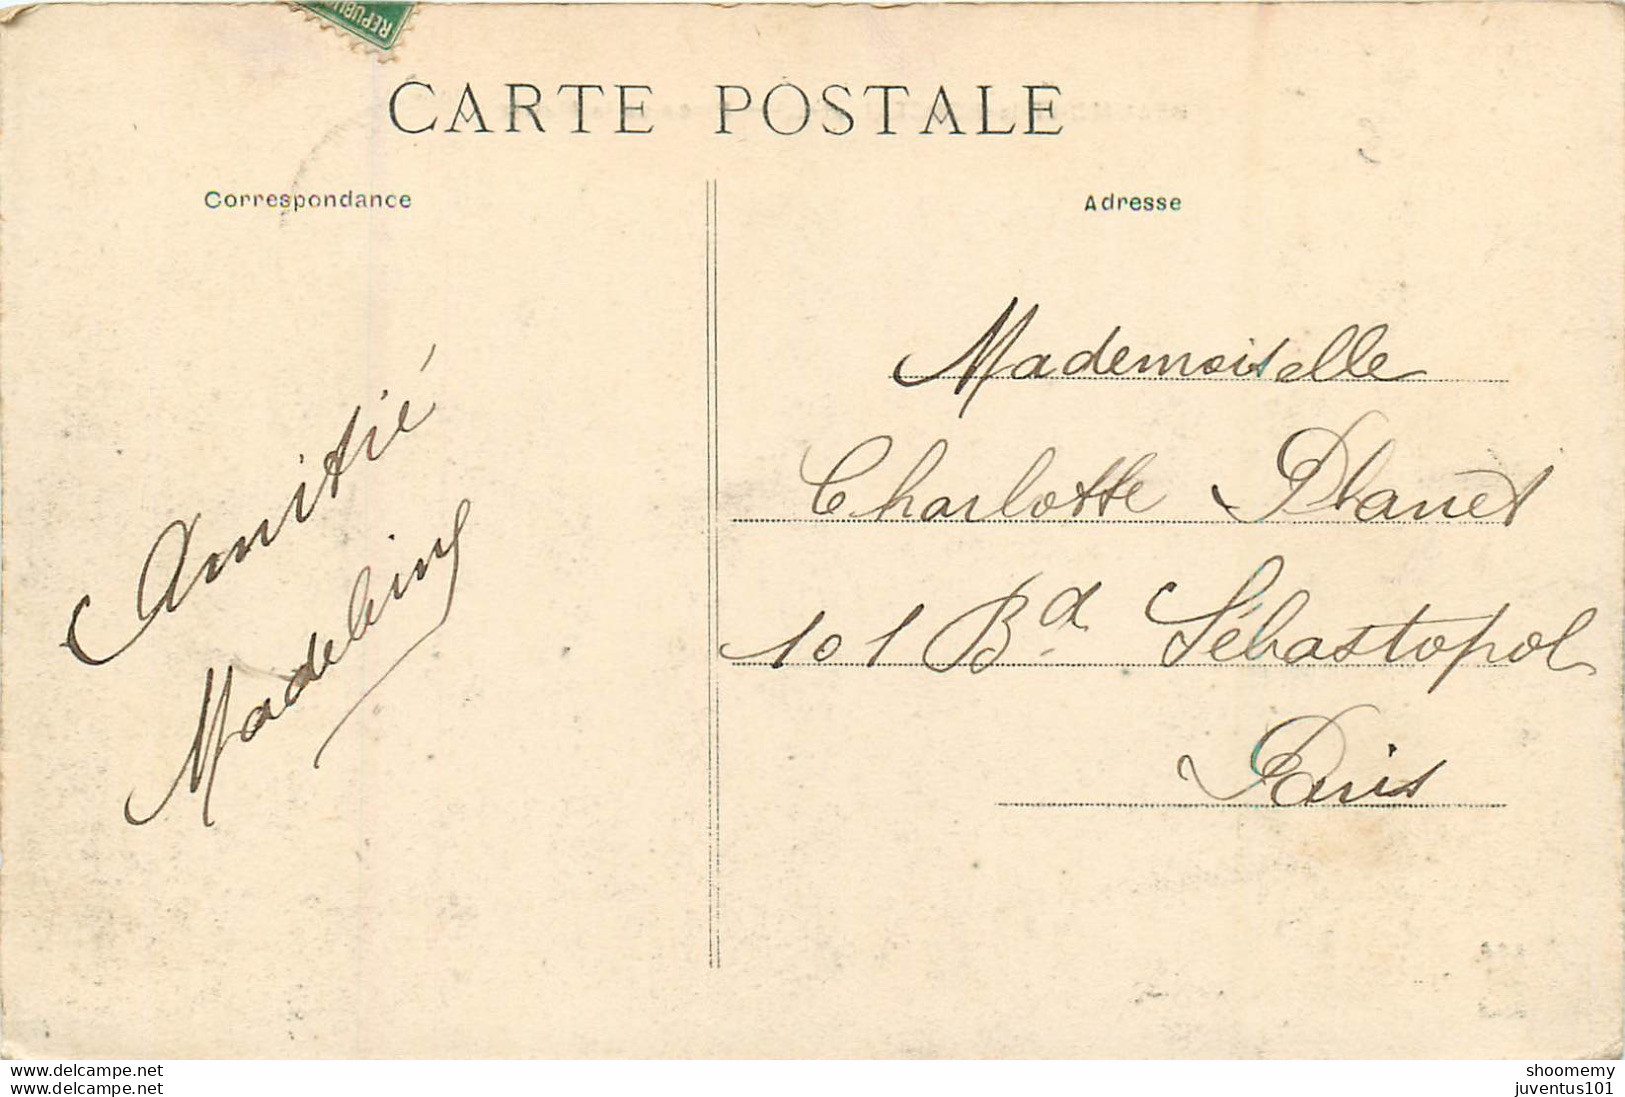 REPUBLI
CARTE POSTALE
Correspondance
Adresse
Amitié
Mademoiselle
Charlotte Planet
101 Bd. Sébastopol
Paris
www.delcampe.net
www.delcampe.net
shoomemy
juventus101